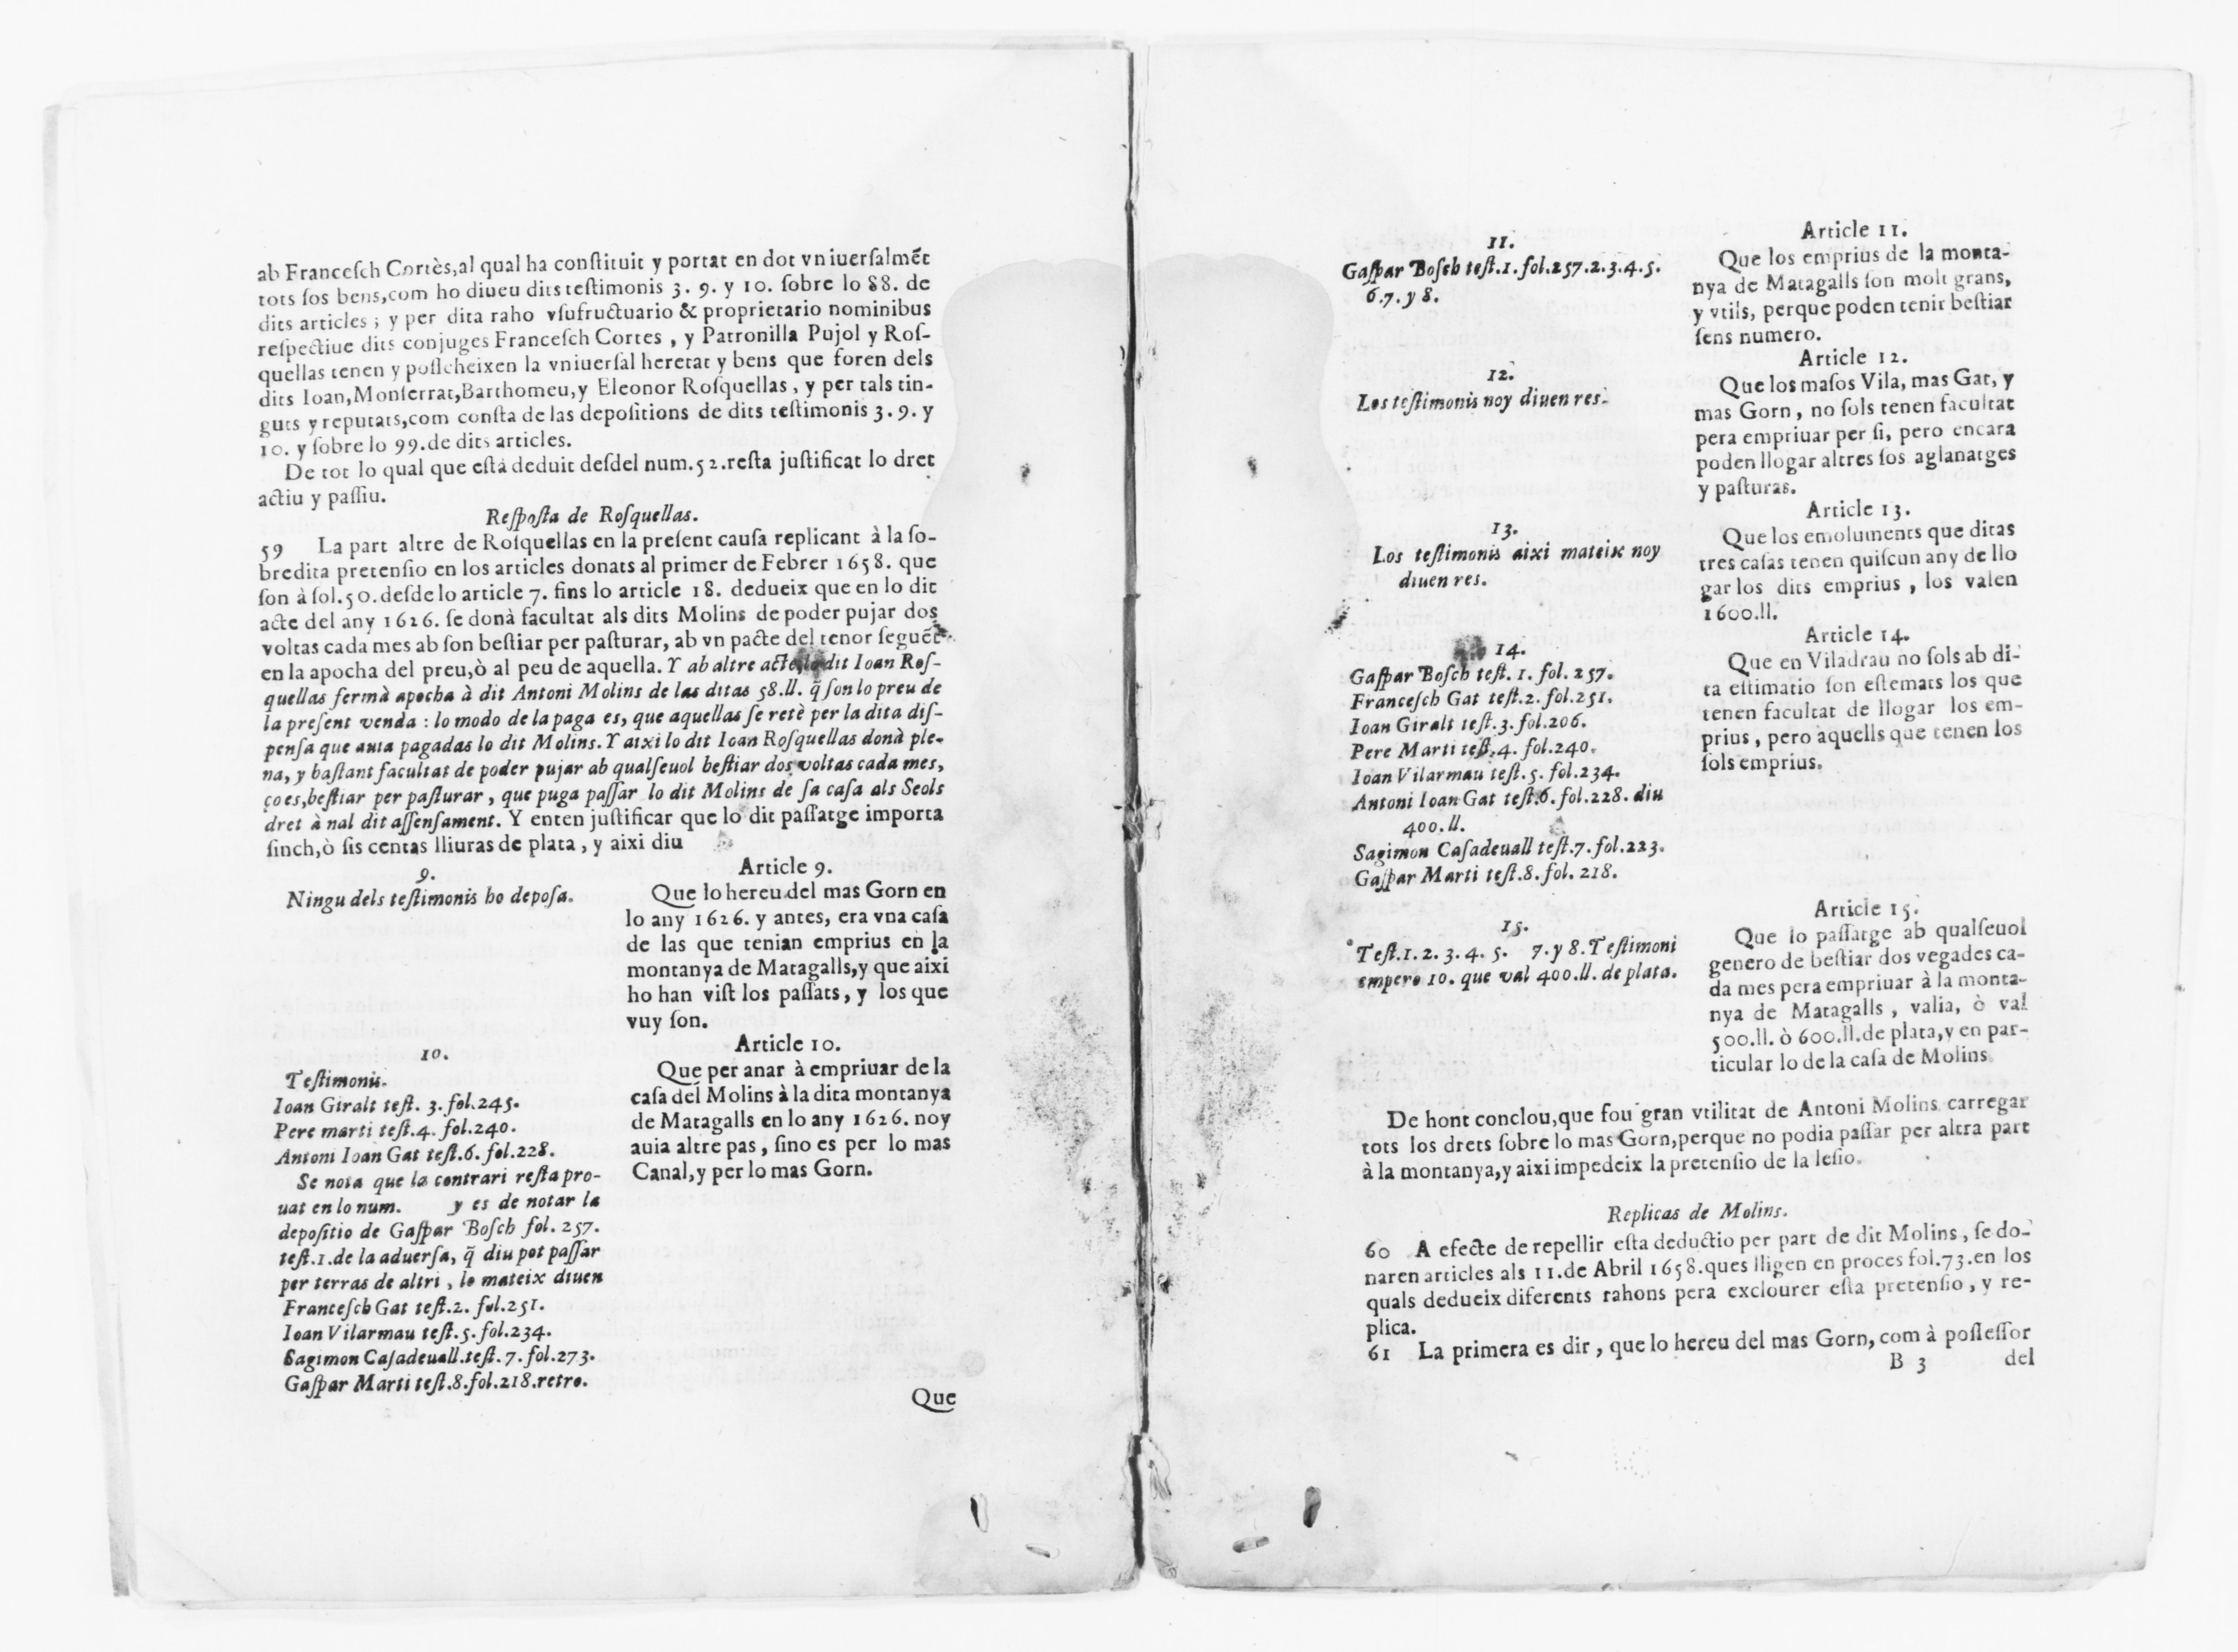 ab Franceſch Cortès,al qual ha conſtituit y portat en dot vniuerſalmẽt
tots ſos bens,com ho diueu dits teſtimonis 3. 9. y 10. ſobre lo 88. de
dits articles ; y per dita raho vſufructuario & proprietario nominibus
reſpectiue dits conjuges Franceſch Cortes , y Patronilla Pujol y Roſ-
quellas tenen y poſſeheixen la vniuerſal heretat y bens que foren dels
dits Ioan,Monſerrat,Barthomeu,y Eleonor Roſquellas , y per tals tin-
guts y reputats,com conſta de las depoſitions de dits teſtimonis 3. 9. y
10. y ſobre lo 99.de dits articles.
De tot lo qual que està deduit deſdel num.52.reſta juſtificat lo dret
actiu y paſſiu.
Reſpoſta de Roſquellas.
59 La part altre de Roſquellas en la preſent cauſa replicant à la ſo-
bredita pretenſio en los articles donats al primer de Febrer 1658. que
ſon à fol.50.deſde lo article 7. fins lo article 18. dedueix que en lo dit
acte del any 1626. ſe donà facultat als dits Molins de poder pujar dos
voltas cada mes ab ſon beſtiar per paſturar, ab vn pacte del tenor ſeguẽt
en la apocha del preu,ò al peu de aquella. Y ab altre acte,lo dit Ioan Roſ-
quellas fermà apocha à dit Antoni Molins de las ditas 58.ll. q̃ ſon lo preu de
la preſent venda : lo modo de la paga es, que aquellas ſe retè per la dita diſ-
penſa que auia pagadas lo dit Molins. Y aixi lo dit Ioan Roſquellas donà ple-
na, y baſtant facultat de poder pujar ab qualſeuol beſtiar dos voltas cada mes,
ço es,beſtiar per paſturar , que puga paſſar lo dit Molins de ſa caſa als Seols
dret à nal dit aſſenſament. Y enten juſtificar que lo dit paſſatge importa
ſinch,ò ſis centas lliuras de plata , y aixi diu
9.
Ningu dels teſtimonis ho depoſa.
Article 9.
Que lo hereu del mas Gorn en
lo any 1626. y antes, era vna caſa
de las que tenian emprius en la
montanya de Matagalls,y que aixi
ho han viſt los paſſats , y los que
vuy ſon.
10.
Teſtimonis.
Ioan Giralt teſt. 3. fol.245.
Pere marti teſt.4. fol.240.
Antoni Ioan Gat teſt.6. fol.228.
Se nota que la contrari reſta pro-
uat en lo num. y es de notar la
depoſitio de Gaſpar Boſch fol. 257.
teſt.1.de la aduerſa, q̃ diu pot paſſar
per terras de altri , lo mateix diuen
Franceſch Gat teſt.2. fol.251.
Ioan Vilarmau teſt.5. fol.234.
Sagimon Caſadeuall.teſt.7. fol.273.
Gaſpar Marti teſt.8.fol.218.retro.
Article 10.
Que per anar à empriuar de la
caſa del Molins à la dita montanya
de Matagalls en lo any 1626. noy
auia altre pas , ſino es per lo mas
Canal,y per lo mas Gorn.
Que
11.
Gaſpar Boſch teſt.1. fol.257.2.3.4.5.
6.7. y 8.
Article 11.
Que los emprius de la monta-
nya de Matagalls ſon molt grans,
y vtils, perque poden tenir beſtiar
ſens numero.
12.
Los teſtimonis noy diuen res.
Article 12.
Que los maſos Vila, mas Gat, y
mas Gorn , no ſols tenen facultat
pera empriuar per ſi, pero encara
poden llogar altres ſos aglanatges
y paſturas.
13.
Los teſtimonis aixi mateix noy
diuen res.
Article 13.
Que los emoluments que ditas
tres caſas tenen quiſcun any de llo
gar los dits emprius , los valen
1600.ll.
14.
Gaſpar Boſch teſt. 1. fol. 257.
Franceſch Gat teſt.2. fol.251.
Ioan Giralt teſt.3. fol.206.
Pere Marti teſt.4. fol.240.
Ioan Vilarmau teſt.5. fol.234.
Antoni Ioan Gat teſt.6. fol.228. diu
400.ll.
Sagimon Caſadeuall teſt.7. fol.223.
Gaſpar Marti teſt.8. fol. 218.
Article 14.
Que en Viladrau no ſols ab di-
ta eſtimatio ſon eſtemats los que
tenen facultat de llogar los em-
prius , pero aquells que tenen los
ſols emprius.
15.
Teſt.1. 2. 3. 4. 5. 7. y 8. Teſtimoni
empero 10. que val 400.ll. de plata.
Article 15.
Que lo paſſatge ab qualſeuol
genero de beſtiar dos vegades ca-
da mes pera empriuar à la monta-
nya de Matagalls , valia, ò val
500.ll. ò 600.ll.de plata,y en par-
ticular lo de la caſa de Molins.
De hont conclou,que fou gran vtilitat de Antoni Molins carregar
tots los drets ſobre lo mas Gorn,perque no podia paſſar per altra part
à la montanya,y aixi impedeix la pretenſio de la leſio.
Replicas de Molins.
60 A efecte de repellir eſta deductio per part de dit Molins , ſe do-
naren articles als 11.de Abril 1658.ques lligen en proces fol.73.en los
quals dedueix diferents rahons pera exclourer eſta pretenſio , y re-
plica.
61 La primera es dir , que lo hereu del mas Gorn, com à poſſeſſor
B 3 del